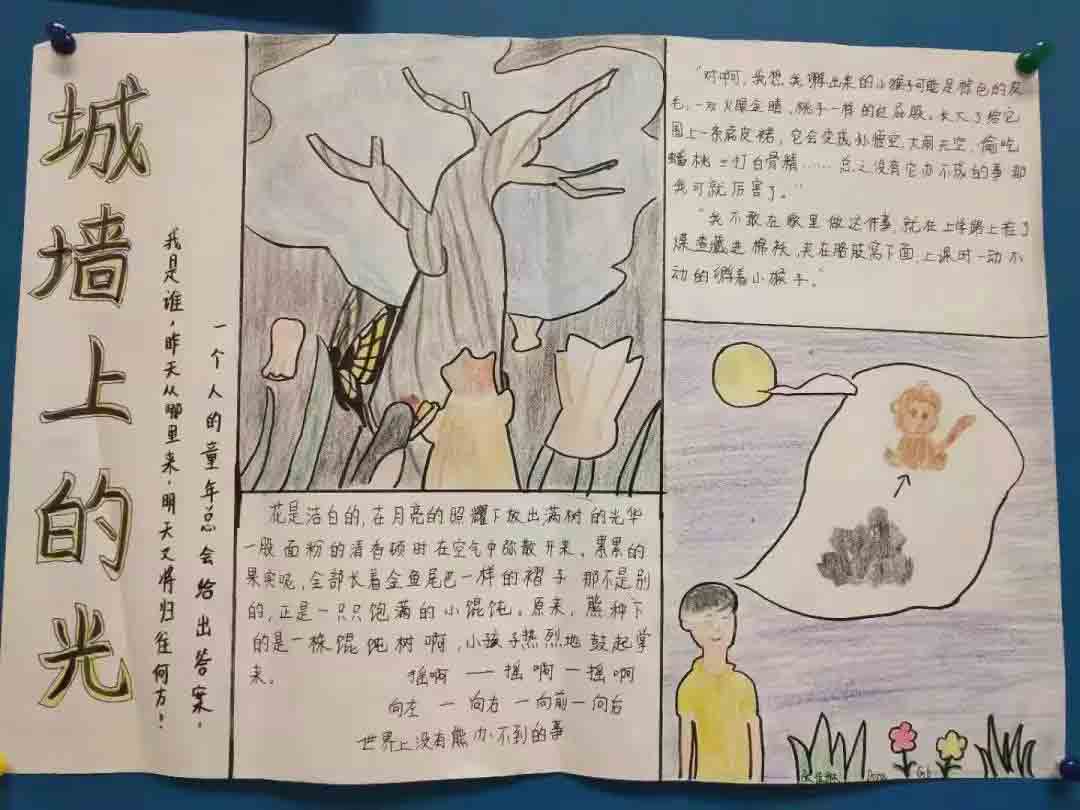 城墙上的光
我是谁，昨天从哪里来，明天又将归往何方！
一个人的童年总会给出答案。
花是洁白的，在月亮的照耀下放出满树的光华
一股面粉的清香顿时在空气中弥散开来，累累的
果实呢，全部长着金鱼尾巴一样的褶子 那不是别
的，正是一只只饱满的小馄饨。原来，熊种下
的是一株馄饨树啊，小孩子热烈地鼓起掌
来。 摇啊 一 摇啊 一 摇啊
向左 一 向右 一向前一向后
世界上没有熊办不到的事
“对啊，我想我孵出来的小猴子可能是棕色的皮
毛，一双火眼金睛，桃子一样的红屁股。长大了给它
围上一条虎皮裙，它会变成孙悟空，大闹天空，偷吃
蟠桃 三打白骨精……总之没有它办不成的事 那
我可就厉害了。”
“我不敢在家里做这件事，就在上学路上捡了
煤渣藏进棉袄，夹在胳肢窝下面，上课时一动不
动的孵着小猴子。”